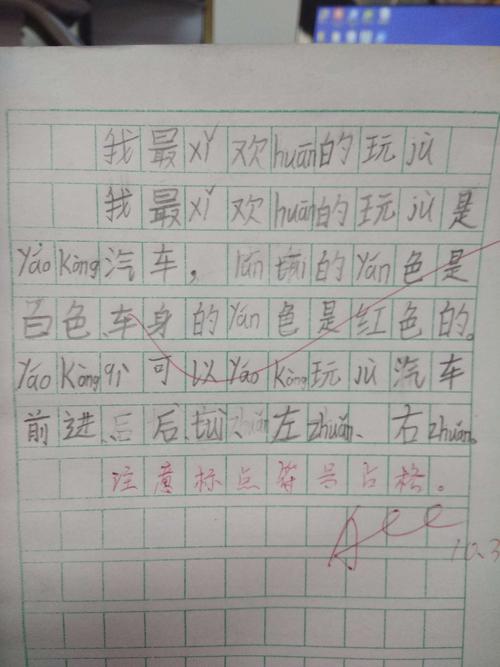 我最xǐ欢huān的玩jù
我最xǐ欢huān的玩jù是
yáo kòng汽车，lún tāi的yán色是
白色,车身的yán色是红色的。
yáo kòng qì可以yáo kòng玩jù汽车
前进、后tuì、左zhuǎn、右zhuǎn。
注意标点符号占格。
A
10.3